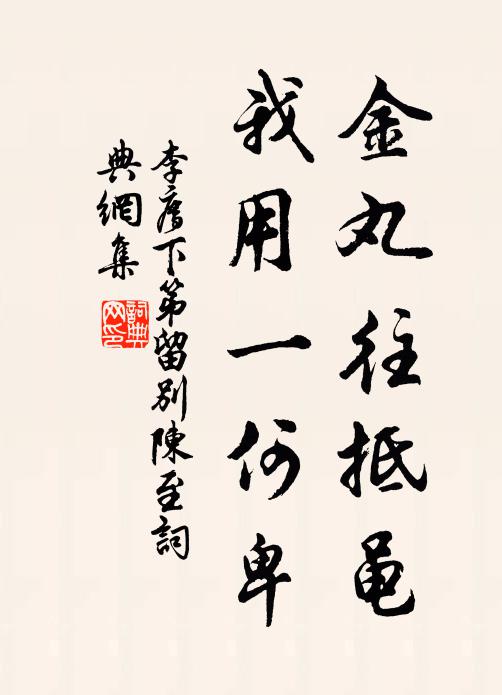 金丸往抵黾
我用一何卑
李廌下第留別陳至詞
典網集
詞典
网印